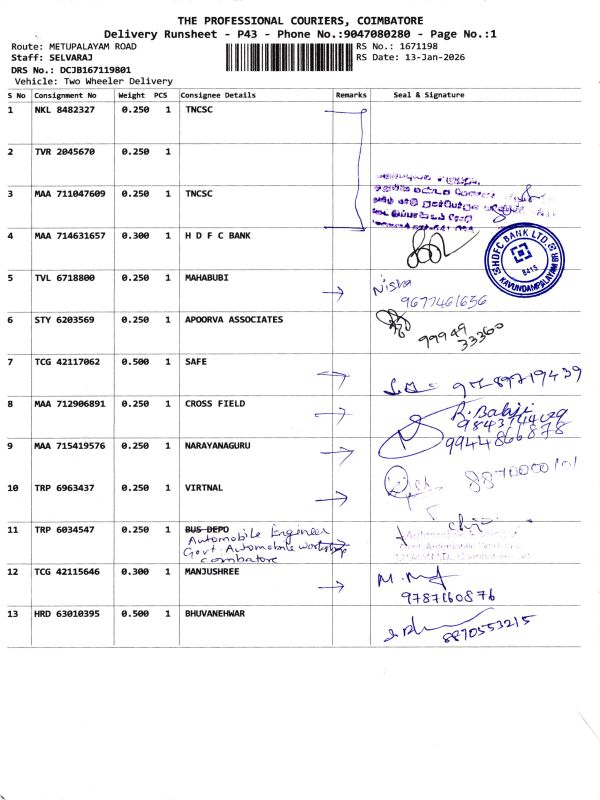 THE PROFESSIONAL COURIERS, COIMBATORE
Delivery Runsheet - P43 - Phone No.:9047080280 - Page No.:1
Route: METUPALAYAM ROAD
RS No.: 1671198
Staff: SELVARAJ
RS Date: 13-Jan-2026
DRS No.: DCJB167119801
Vehicle: Two Wheeler Delivery
S No Consignment No Weight PCS Consignee Details Remarks Seal & Signature
1 NKL 8482327 0.250 1 TNCSC
2 TVR 2045670 0.250 1
3 MAA 711047609 0.250 1 TNCSC
4 MAA 714631657 0.300 1 H D F C BANK
HDFC BANK LTD.
8415
KAVUNDAMPALAYAM
5 TVL 6718800 0.250 1 MAHABUBI
Nisha
9677461656
6 STY 6203569 0.250 1 APOORVA ASSOCIATES
99949
33360
7 TCG 42117062 0.500 1 SAFE
9789719439
8 MAA 712906891 0.250 1 CROSS FIELD
R. Balaji
9 MAA 715419576 0.250 1 NARAYANAGURU
9944866878
10 TRP 6963437 0.250 1 VIRTNAL
11 TRP 6034547 0.250 1 BUS DEPO
Automobile Engineer
Govt. Automobile workshop
coimbatore
12 TCG 42115646 0.300 1 MANJUSHREE
9787160876
13 HRD 63010395 0.500 1 BHUVANEHWAR
8870553215